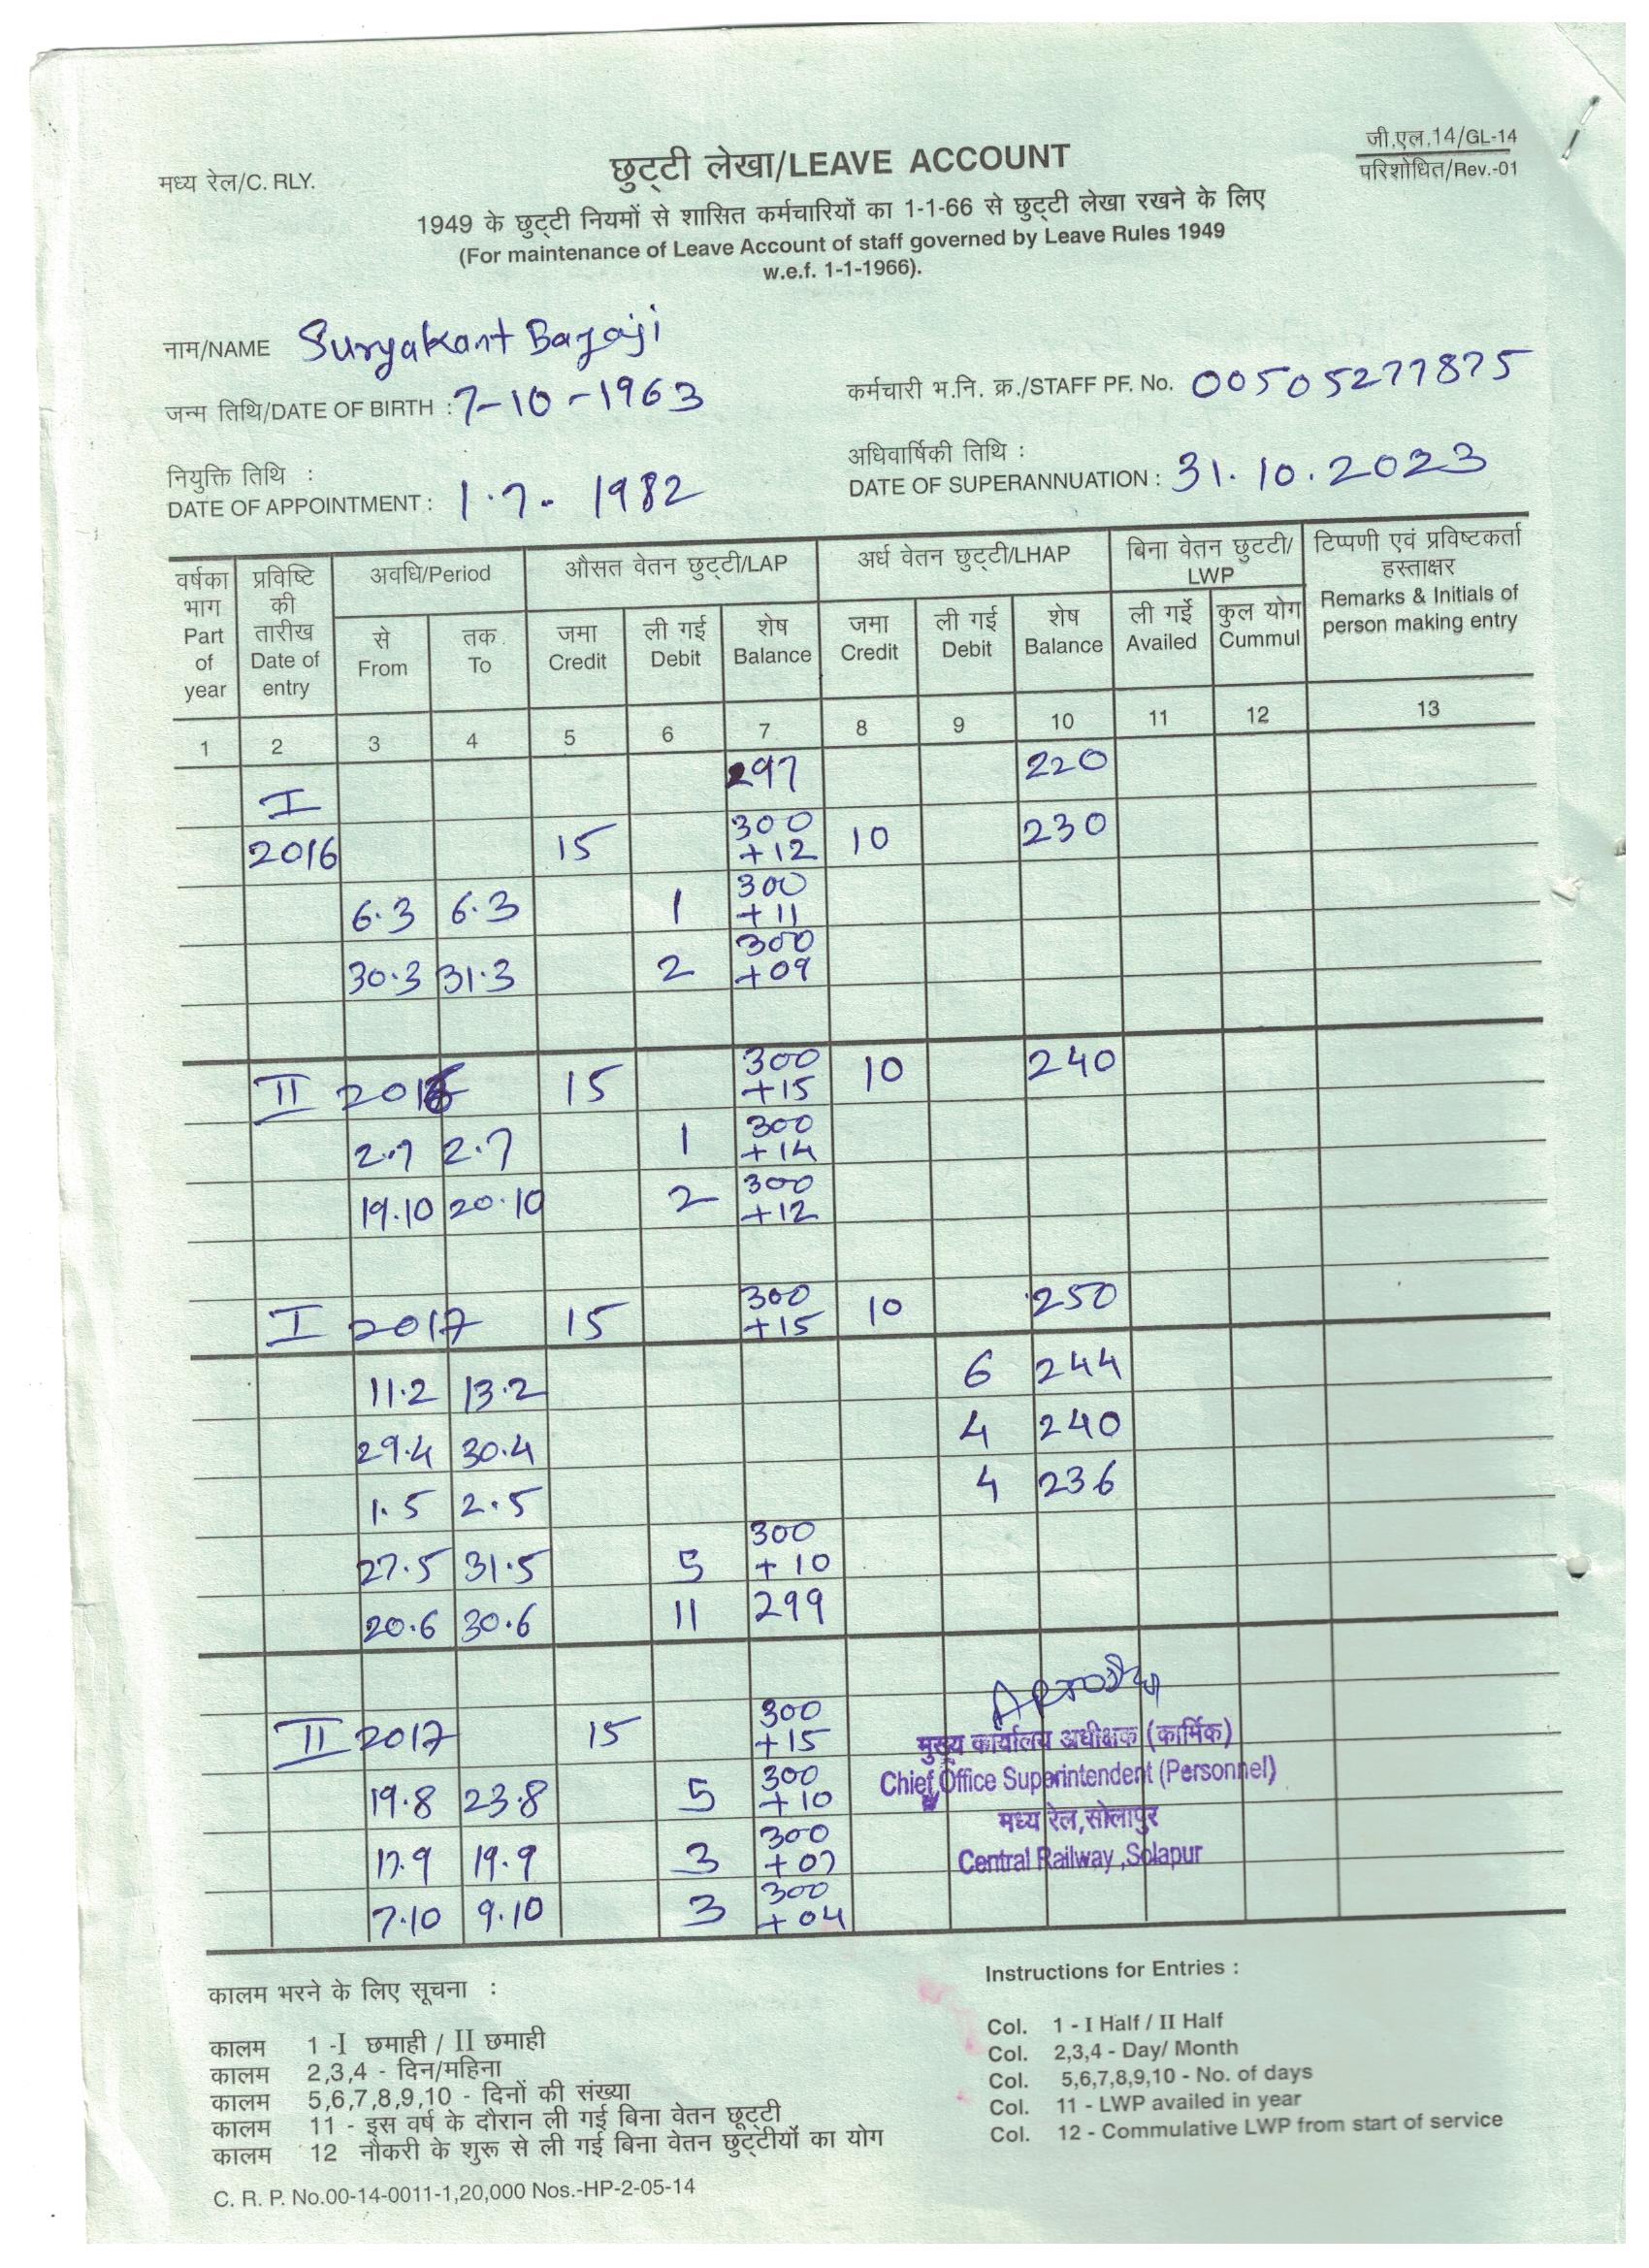 जी.एल.14/GL-14
मध्य रेल/C. RLY.
छुट्टी लेखा/LEAVE ACCOUNT
परिशोधित/Rev.-01
1949 के छुट्टी नियमों से शासित कर्मचारियों का 1-1-66 से छुट्टी लेखा रखने के लिए
(For maintenance of Leave Account of staff governed by Leave Rules 1949
w.e.f. 1-1-1966).
नाम/NAME Suryakant
जन्म तिथि/DATE OF BIRTH : 7-10-1963
कर्मचारी भ.नि. क्र./STAFF PF. No. 00505277875
नियुक्ति तिथि :
DATE OF APPOINTMENT : 1.7.1982
अधिवार्षिकी तिथि :
DATE OF SUPERANNUATION : 31.10.2023
वर्षका भाग Part of year
प्रविष्टि की तारीख Date of entry
अवधि/Period
से From
तक To
औसत वेतन छुट्टी/LAP
जमा Credit
ली गई Debit
शेष Balance
अर्ध वेतन छुट्टी/LHAP
जमा Credit
ली गई Debit
शेष Balance
बिना वेतन छुट्टी/LWP
ली गईे Availed
कुल योग Cummul
टिप्पणी एवं प्रविष्टकर्ता हस्ताक्षर
Remarks & Initials of person making entry
1 2 3 4 5 6 7 8 9 10 11 12 13
I 297 220
2016 15 300 +12 10 230
6.3 6.3 1 300 +11
30.3 31.3 2 300 +09
II 2016 15 300 +15 10 240
2.7 2.7 1 300 +14
19.10 20.10 2 300 +12
I 2017 15 300 +15 10 250
11.2 13.2 6 244
29.4 30.4 4 240
1.5 2.5 4 236
27.5 31.5 5 300 +10
20.6 30.6 11 299
II 2017 15 300 +15
19.8 23.8 5 300 +10
17.9 19.9 3 300 +07
7.10 9.10 3 300 +04
मुख्य कार्यालय अधीक्षक (कार्मिक)
Chief Office Superintendent (Personnel)
मध्य रेल,सोलापुर
Central Railway ,Solapur
कालम भरने के लिए सूचना :
कालम 1 -I छमाही / II छमाही
कालम 2,3,4 - दिन/महिना
कालम 5,6,7,8,9,10 - दिनों की संख्या
कालम 11 - इस वर्ष के दौरान ली गई बिना वेतन छूट्टी
कालम 12 नौकरी के शुरू से ली गई बिना वेतन छुट्टीयों का योग
Instructions for Entries :
Col. 1 - I Half / II Half
Col. 2,3,4 - Day/ Month
Col. 5,6,7,8,9,10 - No. of days
Col. 11 - LWP availed in year
Col. 12 - Commulative LWP from start of service
C. R. P. No.00-14-0011-1,20,000 Nos.-HP-2-05-14